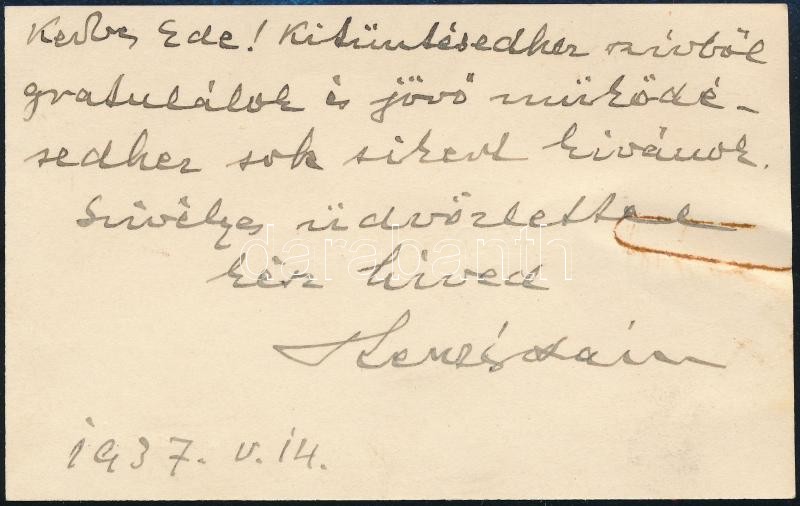 Kedves Ede! Kitüntésedhez szívből
gratulálok és jövő müködé-
sedhez sok sikert kivánok.
Szivélyes üdvözlettel
híved
1937. V. 14.
darabanth